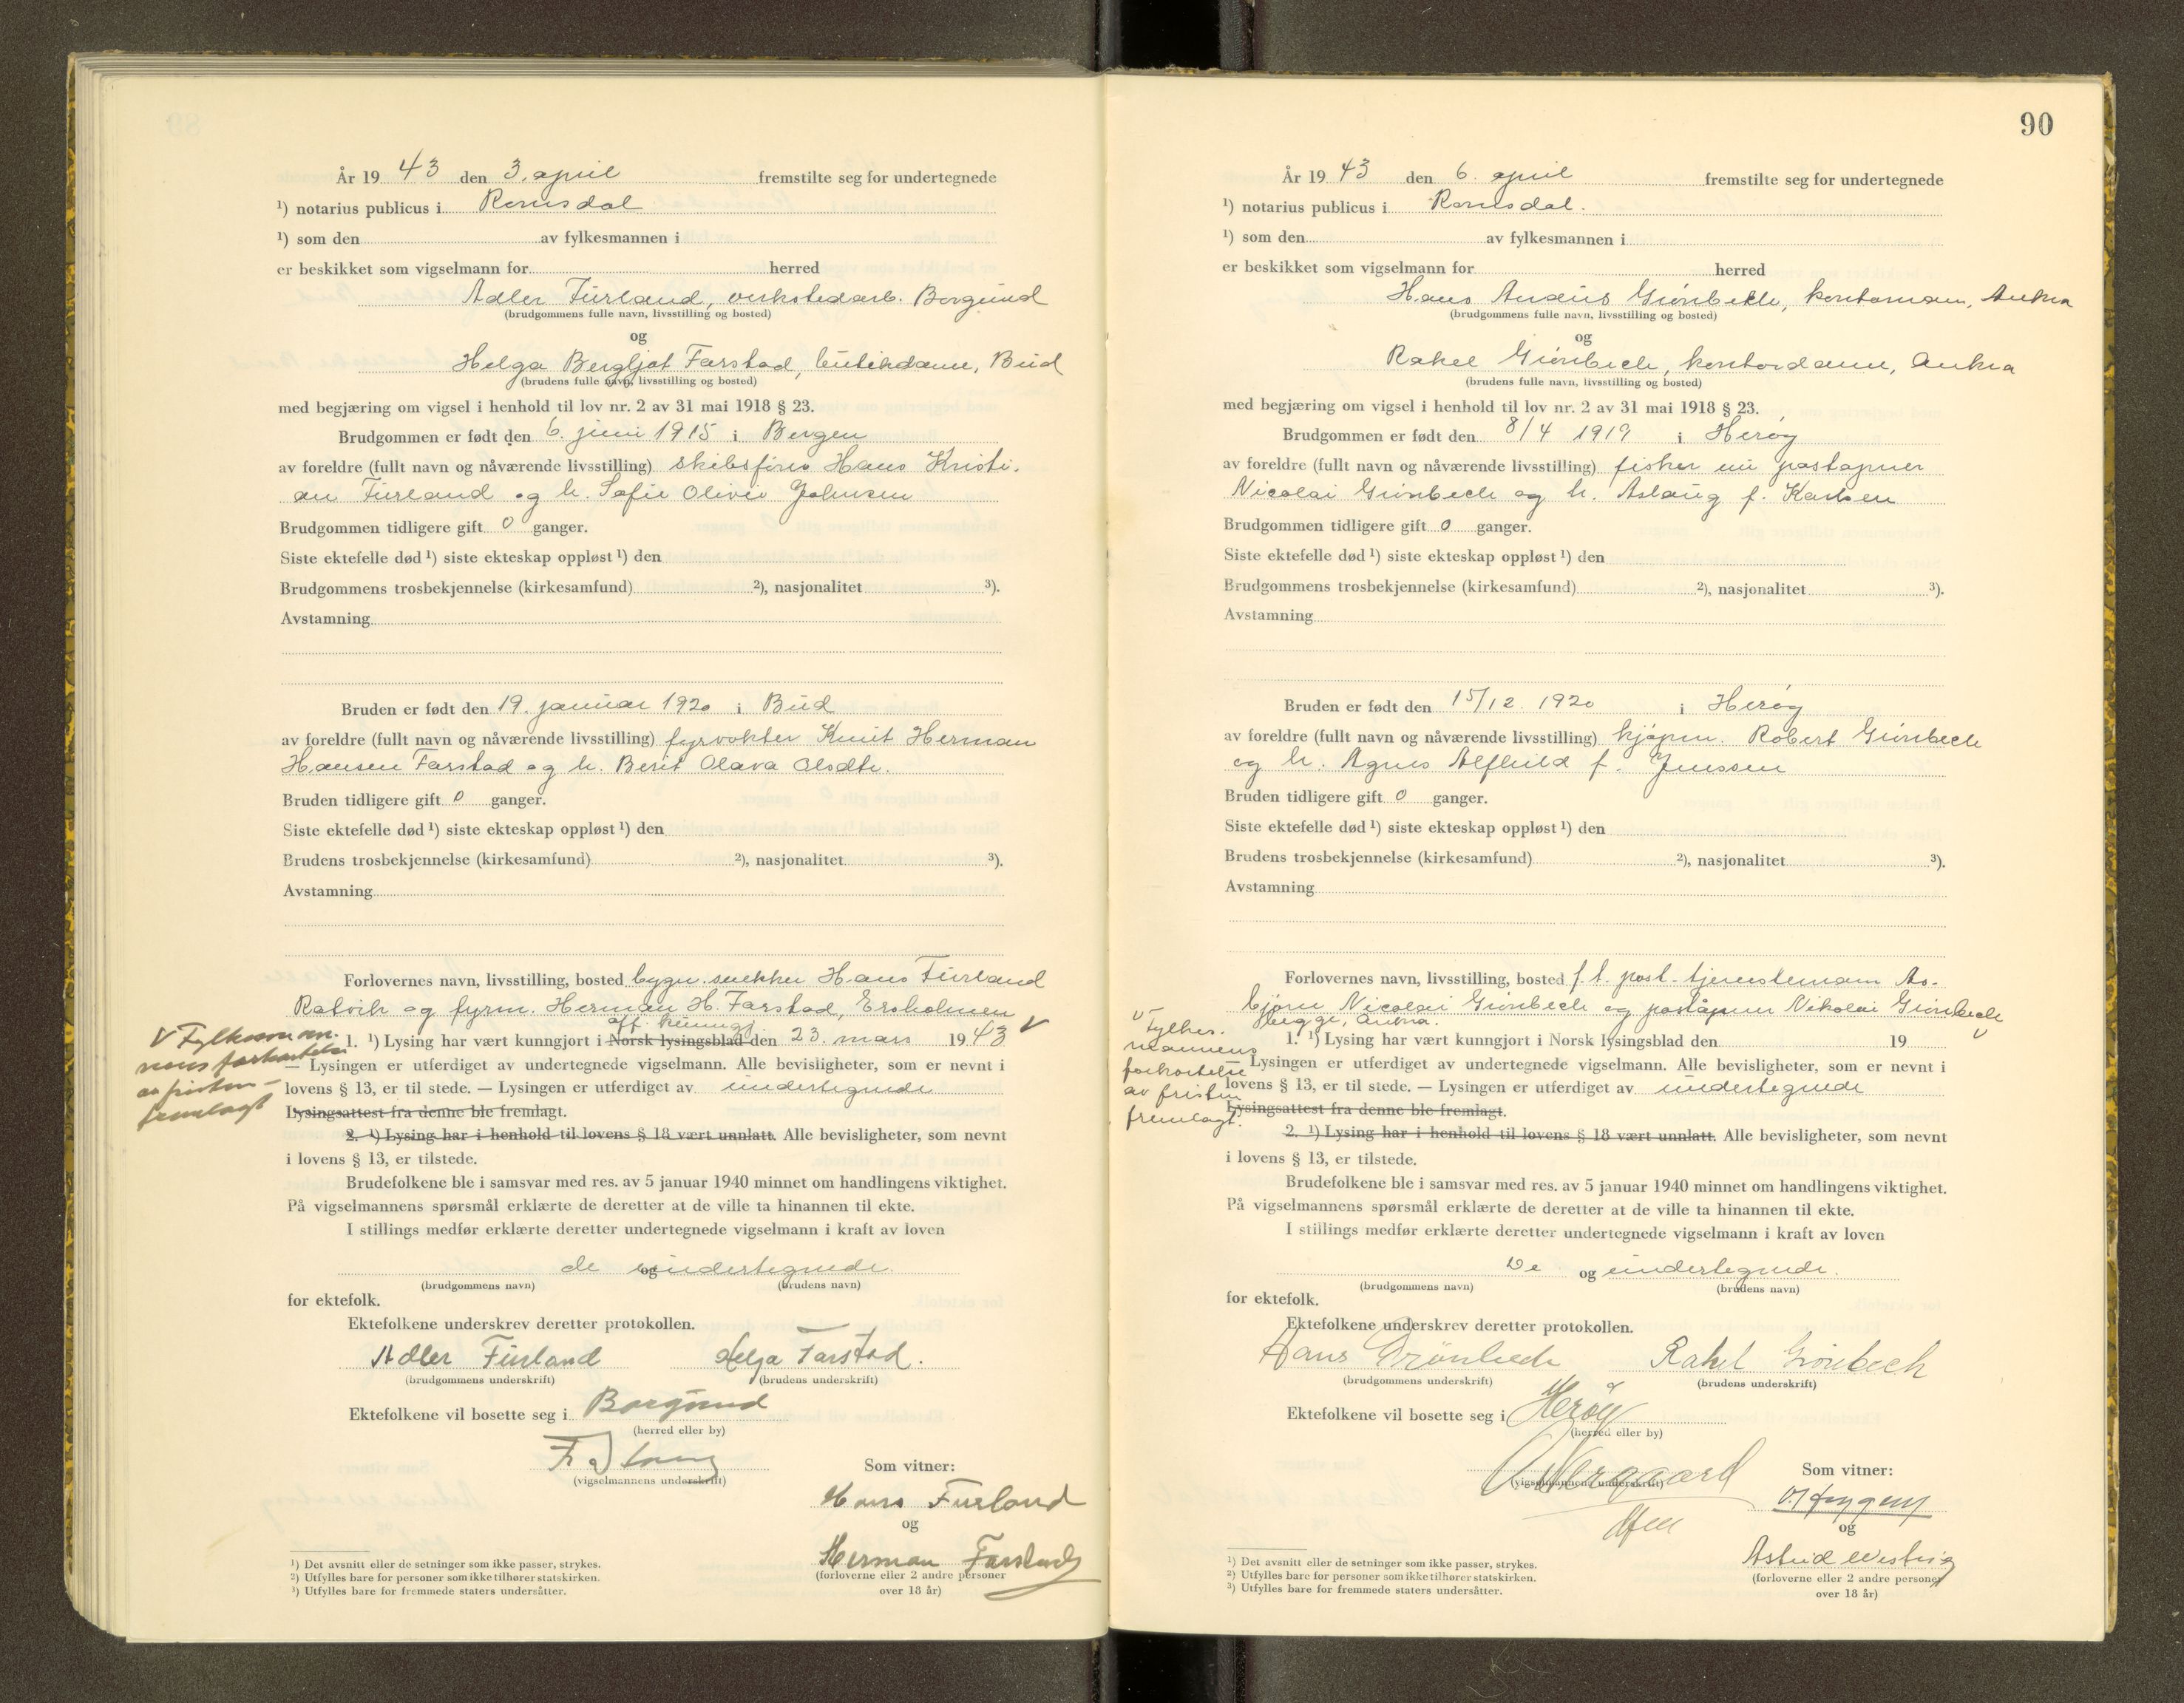 År 19 43 den 3. april fremstilte seg for undertegnede
¹) notarius publicus i Romsdal
¹) som den av fylkesmannen i
er beskikket som vigselmann for herred
Adler Furland, verkstedarb. Borgund
(brudgommens fulle navn, livsstilling og bosted)
og
Helga Bergljot Farstad, butikdame, Bud
(brudens fulle navn, livsstilling og bosted)
med begjæring om vigsel i henhold til lov nr. 2 av 31 mai 1918 § 23.
Brudgommen er født den 6. juni 1915 i Bergen
av foreldre (fullt navn og nåværende livsstilling) skibsfører Hans Kristi-
an Furland og h. Sofie Olivie Johnsen
Brudgommen tidligere gift 0 ganger.
Siste ektefelle død ¹) siste ekteskap oppløst ¹) den
Brudgommens trosbekjennelse (kirkesamfund) ²), nasjonalitet ³).
Avstamning
Bruden er født den 19. januar 1920 i Bud
av foreldre (fullt navn og nåværende livsstilling) fyrvokter Knut Herman
Hansen Farstad og h. Berit Olava Olsdtr.
Bruden tidligere gift 0 ganger.
Siste ektefelle død ¹) siste ekteskap oppløst ¹) den
Brudens trosbekjennelse (kirkesamfund) ²), nasjonalitet ³).
Avstamning
Forlovernes navn, livsstilling, bosted bygn.snekker Hans Furland
Ratvik og fyrm. Herman H. Farstad, Ersholmen
off. kunngj.
V Fylkesman-
nens forkortelse
av fristen
fremlagt
1. ¹) Lysing har vært kunngjort i Norsk lysingsblad den 23. mars 1943 V
— Lysingen er utferdiget av undertegnede vigselmann. Alle bevisligheter, som er nevnt i
lovens § 13, er til stede. — Lysingen er utferdiget av undertegnede
Lysingsattest fra denne ble fremlagt.
2. ¹) Lysing har i henhold til lovens § 18 vært unnlatt. Alle bevisligheter, som nevnt
i lovens § 13, er tilstede.
Brudefolkene ble i samsvar med res. av 5 januar 1940 minnet om handlingens viktighet.
På vigselmannens spørsmål erklærte de deretter at de ville ta hinannen til ekte.
I stillings medfør erklærte deretter undertegnede vigselmann i kraft av loven
de og undertegnede.
(brudgommens navn) (brudens navn)
for ektefolk.
Ektefolkene underskrev deretter protokollen.
Adler Furland Helga Farstad.
(brudgommens underskrift) (brudens underskrift)
Ektefolkene vil bosette seg i Borgund
(herred eller by)
(vigselmannens underskrift)
Som vitner:
Hans Furland
og
Herman Farstad
(forloverne eller 2 andre personer
over 18 år)
¹) Det avsnitt eller de setninger som ikke passer, strykes.
²) Utfylles bare for personer som ikke tilhører statskirken.
³) Utfylles bare for fremmede staters undersåtter.
90
År 19 43 den 6. april fremstilte seg for undertegnede
¹) notarius publicus i Romsdal.
¹) som den av fylkesmannen i
er beskikket som vigselmann for herred
Hans Grønbech, kontormann, Aukra
(brudgommens fulle navn, livsstilling og bosted)
og
Rakel Grønbech, kontordame, Aukra
(brudens fulle navn, livsstilling og bosted)
med begjæring om vigsel i henhold til lov nr. 2 av 31 mai 1918 § 23.
Brudgommen er født den 8/4 1919 i Herøy
av foreldre (fullt navn og nåværende livsstilling) fisker nu poståpner
Nicolai Grønbech og h. Aslaug f. Karlsen
Brudgommen tidligere gift 0 ganger.
Siste ektefelle død ¹) siste ekteskap oppløst ¹) den
Brudgommens trosbekjennelse (kirkesamfund) ²), nasjonalitet ³).
Avstamning
Bruden er født den 15/12 1920 i Herøy
av foreldre (fullt navn og nåværende livsstilling) kjøpm. Robert Grønbech
og h. Agnes Alfhild f. Jenssen
Bruden tidligere gift 0 ganger.
Siste ektefelle død ¹) siste ekteskap oppløst ¹) den
Brudens trosbekjennelse (kirkesamfund) ²), nasjonalitet ³).
Avstamning
Forlovernes navn, livsstilling, bosted f.t. post-tjenestemann As-
bjørn Nicolai Grønbech og poståpner Nikolai Grønbech
Aukra.
V Fylkes-
mannens
forkortelse
av fristen
fremlagt.
1. ¹) Lysing har vært kunngjort i Norsk lysingsblad den 19 V
— Lysingen er utferdiget av undertegnede vigselmann. Alle bevisligheter, som er nevnt i
lovens § 13, er til stede. — Lysingen er utferdiget av undertegnede
Lysingsattest fra denne ble fremlagt.
2. ¹) Lysing har i henhold til lovens § 18 vært unnlatt. Alle bevisligheter, som nevnt
i lovens § 13, er tilstede.
Brudefolkene ble i samsvar med res. av 5 januar 1940 minnet om handlingens viktighet.
På vigselmannens spørsmål erklærte de deretter at de ville ta hinannen til ekte.
I stillings medfør erklærte deretter undertegnede vigselmann i kraft av loven
De og undertegnede.
(brudgommens navn) (brudens navn)
for ektefolk.
Ektefolkene underskrev deretter protokollen.
Hans Grønbech Rakel Grönbech
(brudgommens underskrift) (brudens underskrift)
Ektefolkene vil bosette seg i Herøy
(herred eller by)
(vigselmannens underskrift)
Som vitner:
og
Astrid
(forloverne eller 2 andre personer
over 18 år)
¹) Det avsnitt eller de setninger som ikke passer, strykes.
²) Utfylles bare for personer som ikke tilhører statskirken.
³) Utfylles bare for fremmede staters undersåtter.